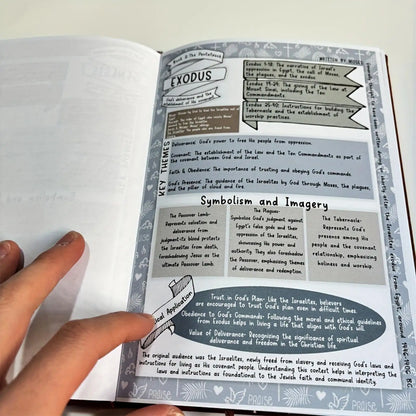 Book 2: The Pentateuch
WRITTEN BY: MOSES
EXODUS
God's deliverance and the
establishment of His covenant
Exodus 1-18: The narrative of Israel's
oppression in Egypt, the call of Moses,
the plagues, and the exodus
Exodus 19-24: The giving of the Law at
Mount Sinai, including the Ten
Commandments
Exodus 25-40: Instructions for building the
Tabernacle and the establishment of
worship practices
KEY THEMES
Deliverance: God's power to free His people from oppression.
Covenant: The establishment of the Law and the Ten Commandments as part of
the covenant between God and Israel.
Faith & Obedience: The importance of trusting and obeying God's commands.
God's Presence: The guidance of the Israelites by God through Moses, the plagues,
and the pillar of cloud and fire.
Symbolism and Imagery
The Passover Lamb-
Represents salvation and
deliverance from
judgment-its blood protects
the Israelites from death,
foreshadowing Jesus as the
ultimate Passover Lamb.
The Plagues-
Symbolize God's judgment against
Egypt's false gods and their
oppression of the Israelites,
showcasing His power and
authority. They also foreshadow
the Passover, emphasizing themes
of deliverance and redemption.
The Tabernacle-
Represents God's
presence among His
people and the covenant
relationship, emphasizing
holiness and worship.
Application
Trust in God's Plan- Like the Israelites, believers
are encouraged to trust God's plan even in difficult times.
Obedience to God's Commands- Following the moral and ethical guidelines
from Exodus helps in living a life that aligns with God's will.
Value of Deliverance- Recognizing the significance of spiritual
deliverance and freedom in the Christian life.
The original audience was the Israelites, newly freed from slavery and receiving God's laws and
instructions for living as His covenant people. Understanding this context helps in interpreting the
laws and instructions as foundational to the Jewish faith and communal identity.